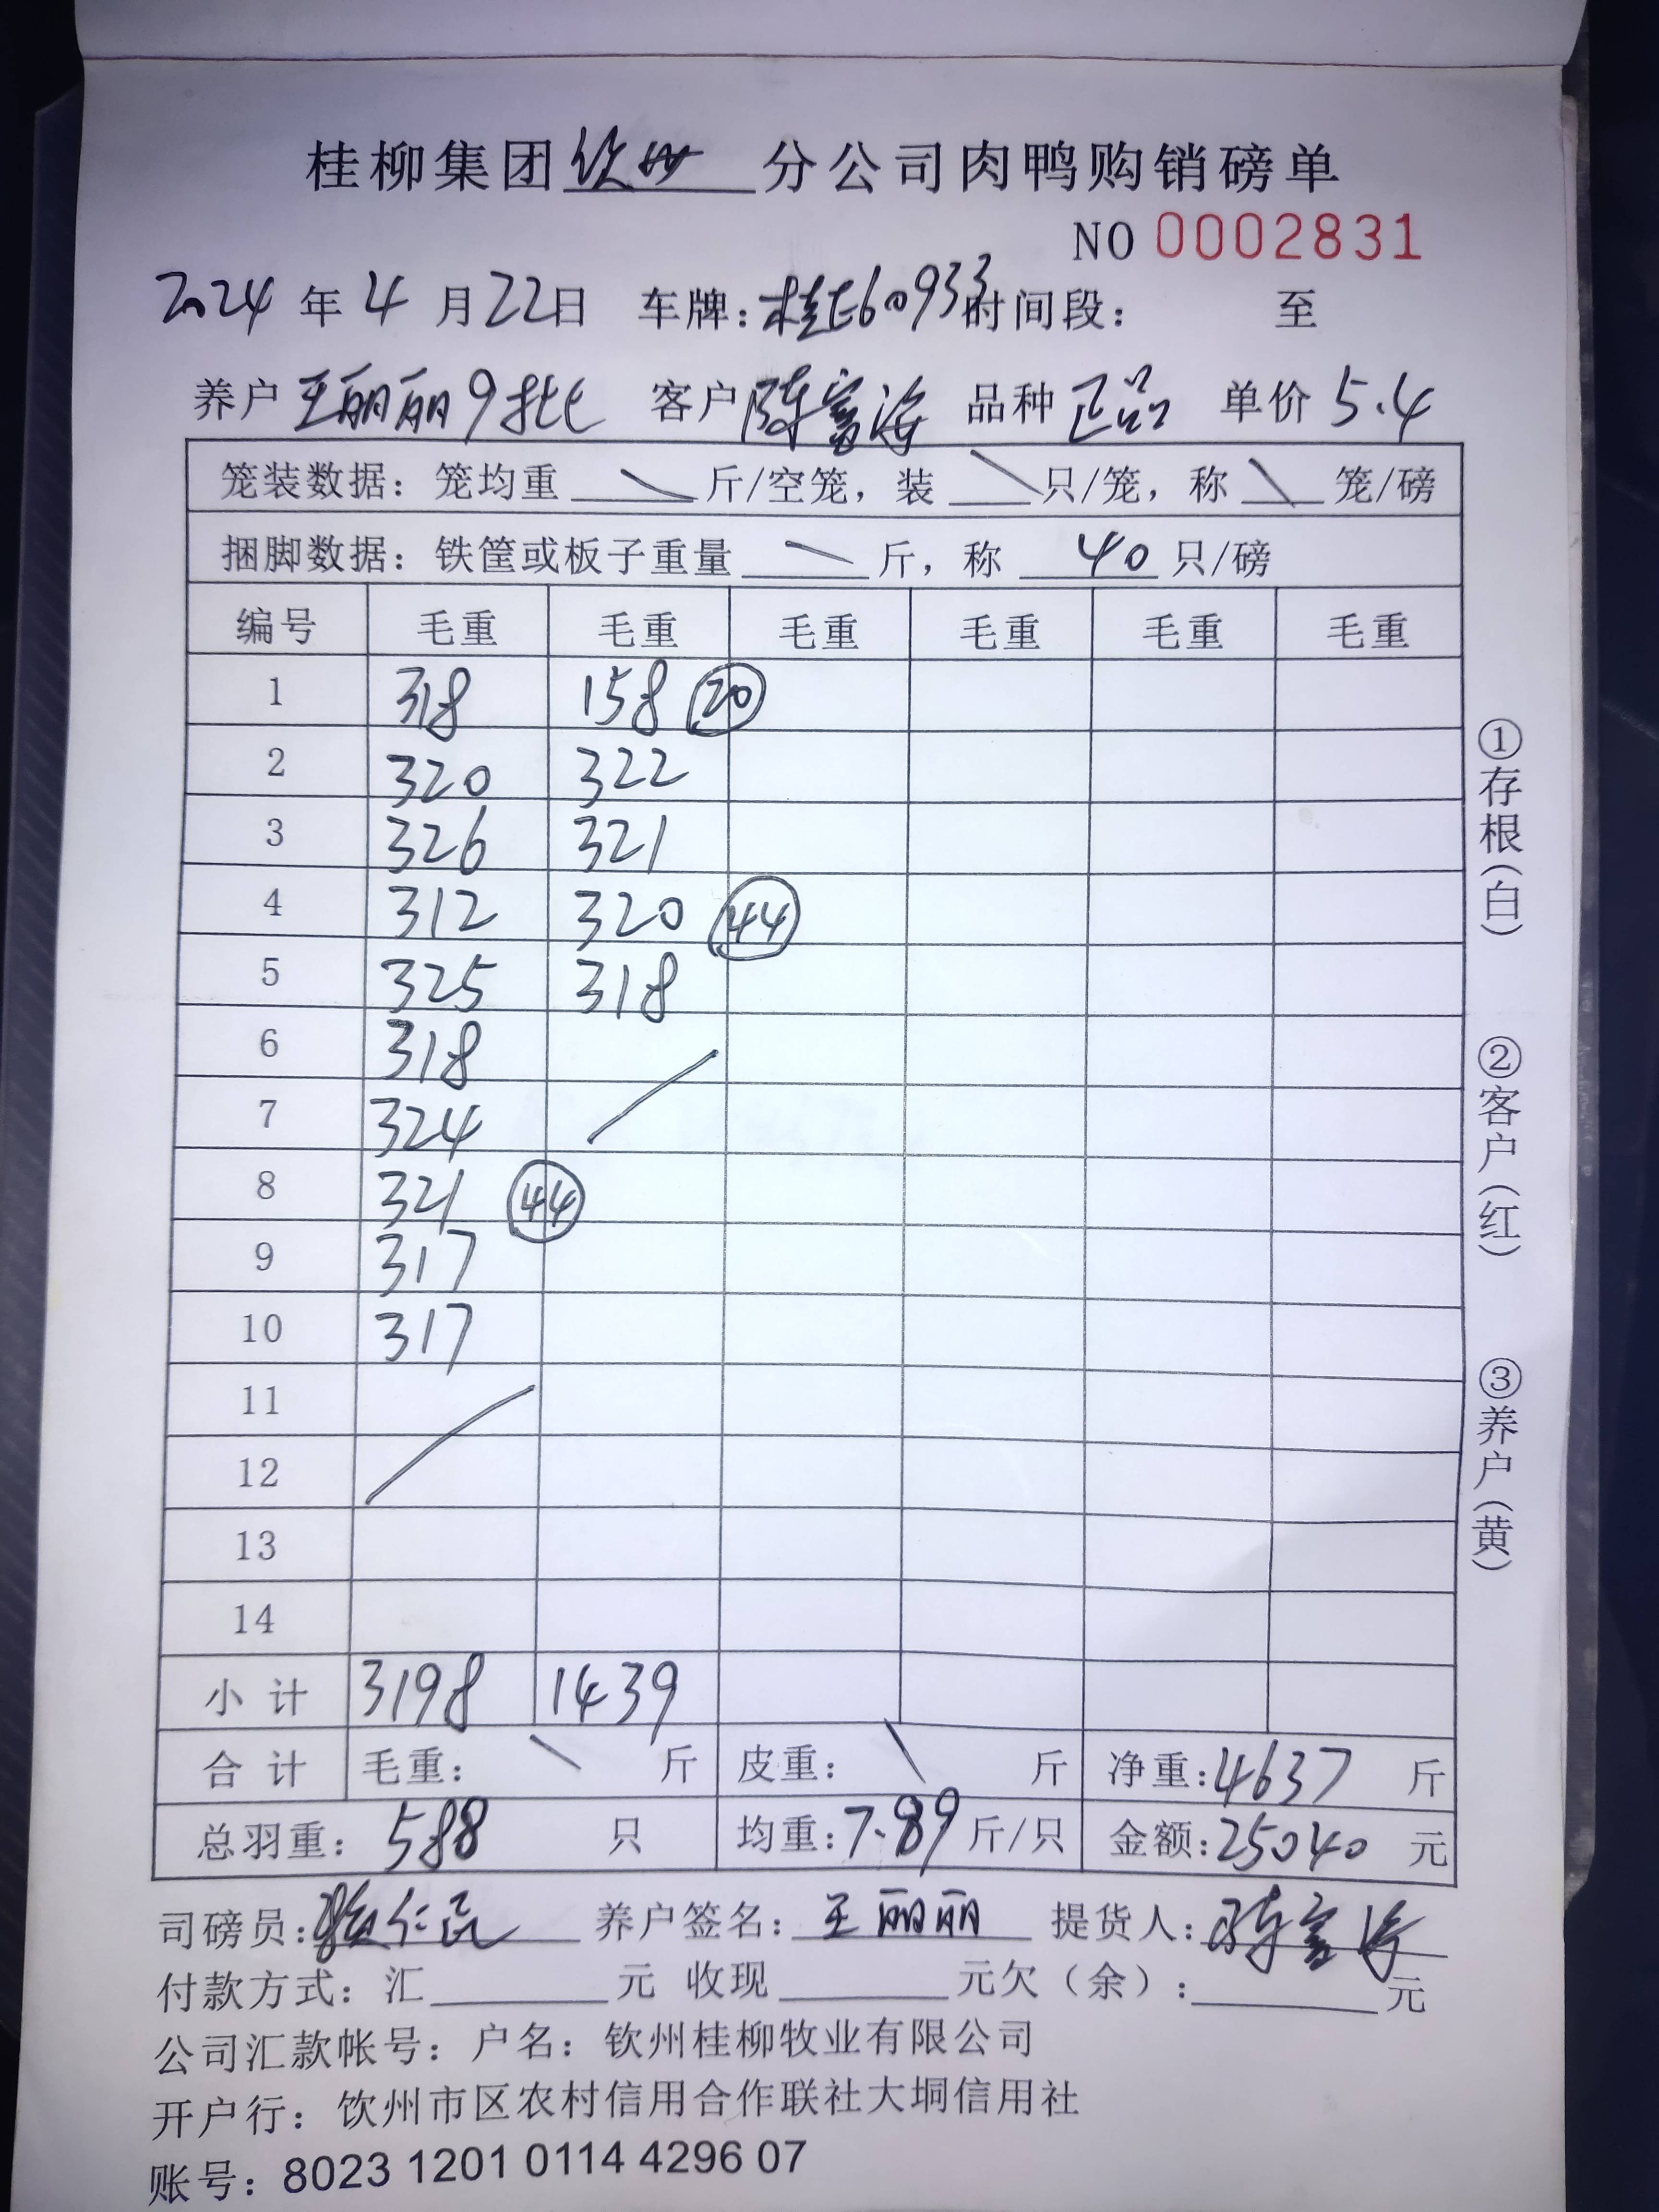 桂柳集团钦州分公司肉鸭购销磅单
NO 0002831
2024年4月22日 车牌:桂E60933时间段: 至
养户 王丽丽9批 客户 陈富海 品种 正品 单价 5.4
笼装数据:笼均重 \ 斤/空笼,装 \ 只/笼,称 \ 笼/磅
捆脚数据:铁筐或板子重量 \ 斤,称 40 只/磅
编号 毛重 毛重 毛重 毛重 毛重 毛重
1 318 158 20
2 320 322
3 326 321
4 312 320 44
5 325 318
6 318
7 324
8 321 44
9 317
10 317
11
12
13
14
小计 3198 1439
合计 毛重: \ 斤 皮重: \ 斤 净重:4637 斤
总羽重:588 只 均重:7.89 斤/只 金额:25040 元
司磅员: 养户签名:王丽丽 提货人:陈富海
付款方式:汇 元 收现 元欠(余): 元
公司汇款帐号:户名:钦州桂柳牧业有限公司
开户行:钦州市区农村信用合作联社大垌信用社
账号:8023 1201 0114 4296 07
①存根(白)
②客户(红)
③养户(黄)